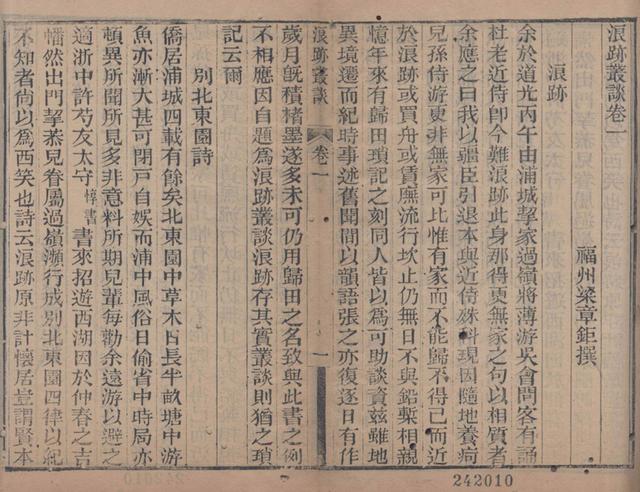 浪跡叢談卷一
福州梁章鉅撰
浪跡
余於道光丙午由浦城挈家過嶺將薄游吳會問客有誦
杜老近侍卽今難浪跡此身那得更無家之句以相質者
余應之曰我以疆臣引退本與近侍殊科現因隨地養疴
兒孫侍游更非無家可比惟有家而不能歸不得已而近
於浪跡或買舟或賃廡流行坎止仍無日不與鉛槧相親
憶年來有歸田瑣記之刻同人皆以為可助談資茲雖地
異境遷而紀時事述舊聞間以韻語張之亦復逐日有作
浪跡叢談
卷一
一
歲月旣積楮墨遂多未可仍用歸田之名致與此書之例
不相應因自題為浪跡叢談浪跡存其實叢談則猶之瑣
記云爾
別北東園詩
僑居浦城四載有餘矣北東園中草木日長半畝塘中游
魚亦漸大甚可閉戶自娛而浦中風俗日偷省中時局亦
頓異所聞所見多非意料所期兒輩每勸余遠游以避之
適浙中許芍友太守惇書書來招遊西湖因於仲春之吉
幡然出門挈恭兒眷屬過嶺瀕行成別北東園四律以紀
不知者尚以為西笑也詩云浪跡原非計懷居豈謂賢本
242010